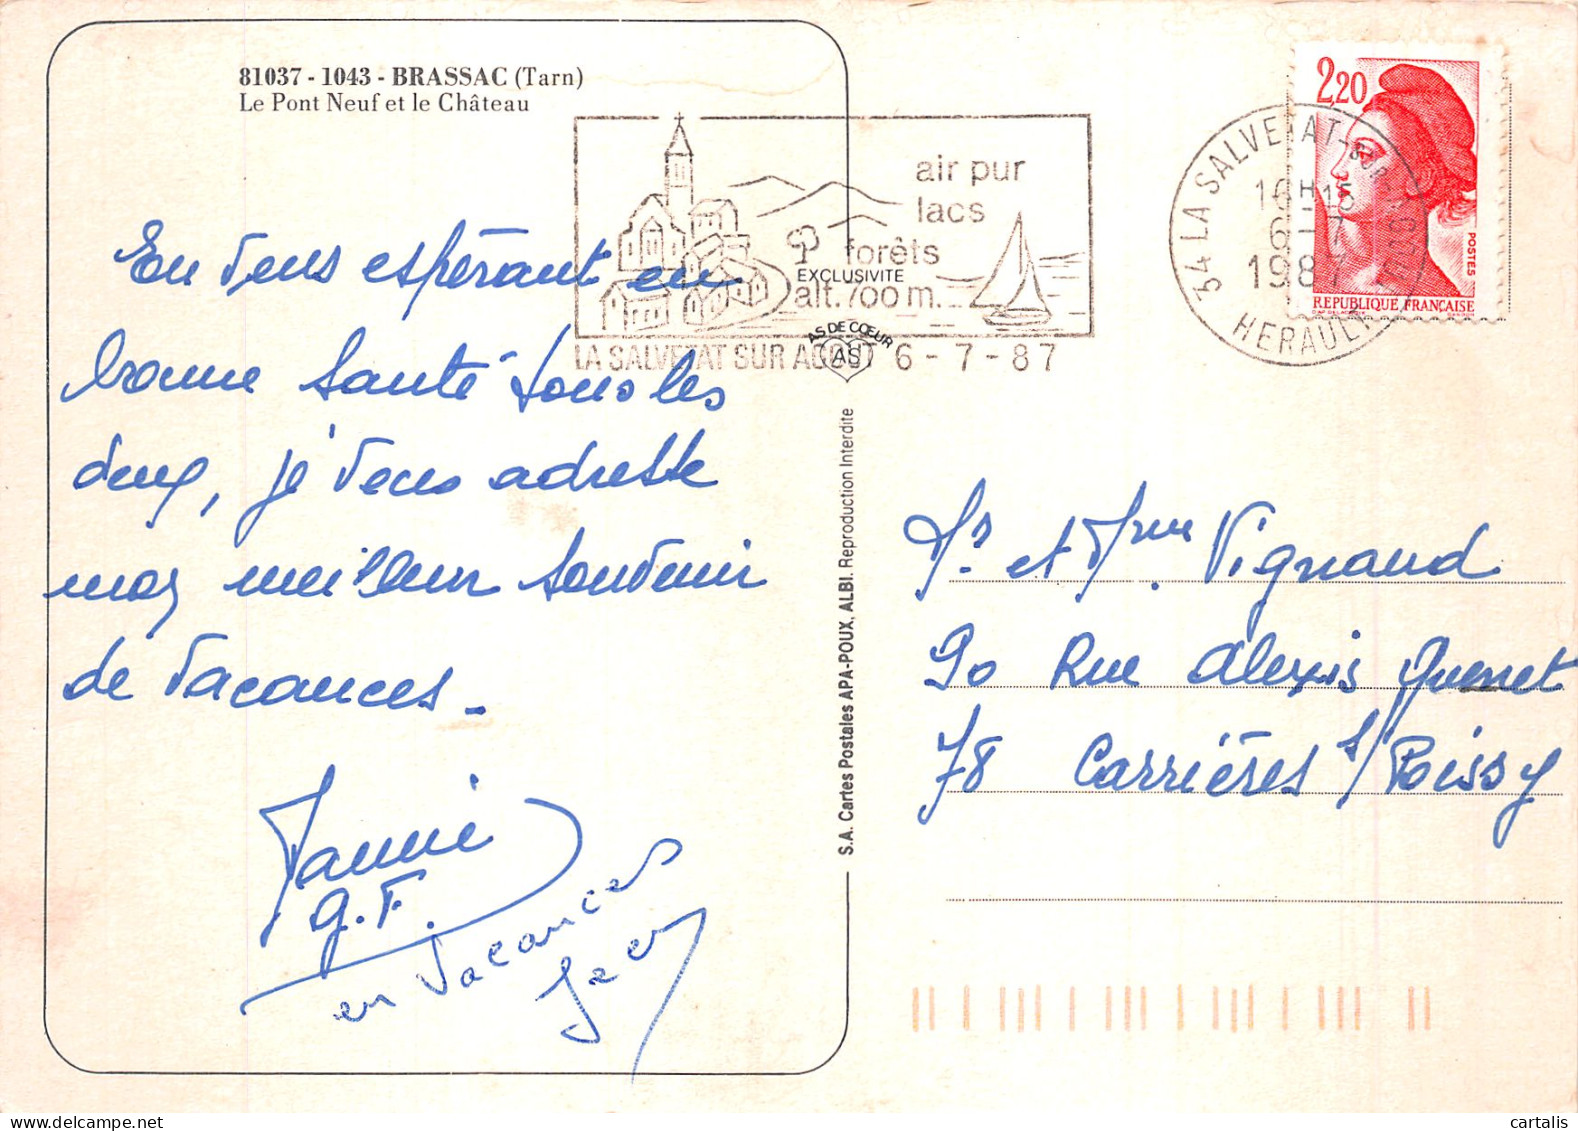 81037 - 1043 - BRASSAC (Tarn)
Le Pont Neuf et le Château
En vous espérant en
bonne santé tous les
deux, je vous adresse
mon meilleur souvenir
de vacances.
G.F.
en vacances
air pur
lacs
forêts
alt. 700 m.
LA SALVETAT SUR AGOUT 6 - 7 - 87
EXCLUSIVITE
AS DE CŒUR
AS
S.A. Cartes Postales APA-POUX, ALBI. Reproduction Interdite
34 LA SALVETAT-SUR-AGOUT
16H15
6-7
1987
HERAULT
2,20
POSTES
REPUBLIQUE FRANÇAISE
Mr et Mme Vignaud
90 Rue Alexis Quenet
78 Carrières s/ Poissy
cartalis